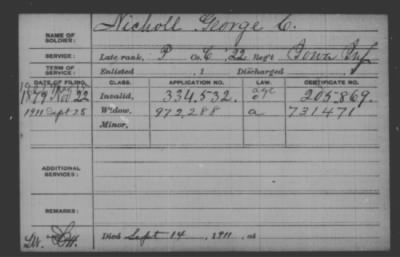 NAME OF SOLDIER: Nicholl George C.
SERVICE: Late rank, P Co. C, 22 Reg't Iowa Inf
TERM OF SERVICE: Enlisted , 1 Discharged
DATE OF FILING. CLASS. APPLICATION NO. LAW. CERTIFICATE NO.
1879 Nov 22 Invalid, 334.532. age 205.869.
1911 Sept 25 Widow, 972,288 a 731471
Minor,
ADDITIONAL SERVICES:
REMARKS:
Died Sept 14, 1911, at